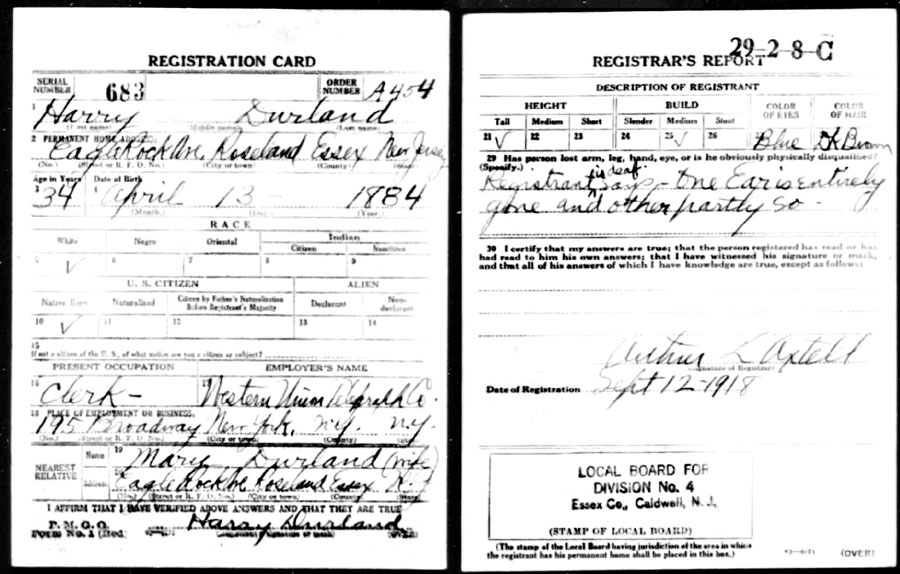 REGISTRATION CARD
SERIAL NUMBER 683 ORDER NUMBER A454
1 Harry Durland
(First name) (Middle name) (Last name)
2 PERMANENT HOME ADDRESS:
Eagle Rock Ave, Roseland Essex New Jersey
(No.) (Street or R. F. D. No.) (City or town) (County) (State)
Age in Years Date of Birth
3 34 4 April 13 - 1884
(Month.) (Day.) (Year.)
RACE
White Negro Oriental Indian
Citizen Noncitizen
5 ✓ 6 7 8 9
U. S. CITIZEN ALIEN
Native Born Naturalized Citizen by Father's Naturalization Before Registrant's Majority Declarant Non-declarant
10 ✓ 11 12 13 14
15
If not a citizen of the U. S., of what nation are you a citizen or subject?
PRESENT OCCUPATION EMPLOYER'S NAME
16 Clerk - 17 Western Union Telegraph Co.
18 PLACE OF EMPLOYMENT OR BUSINESS:
195 Broadway New York, N.Y. N.Y.
(No.) (Street or R. F. D. No.) (City or town) (County) (State)
NEAREST RELATIVE Name 19 Mary Durland (wife)
Address 20 Eagle Rock Ave Roseland Essex N.J
(No.) (Street or R. F. D. No.) (City or town) (County) (State)
I AFFIRM THAT I HAVE VERIFIED ABOVE ANSWERS AND THAT THEY ARE TRUE
P. M. G. O.
Form No. 1 (Red) Harry Durland (OVER)
29-2-8-C
REGISTRAR'S REPORT
DESCRIPTION OF REGISTRANT
HEIGHT BUILD COLOR OF EYES COLOR OF HAIR
Tall Medium Short Slender Medium Stout
21 ✓ 22 23 24 25 ✓ 26 Blue Dk Brown
29 Has person lost arm, leg, hand, eye, or is he obviously physically disqualified?
(Specify.)
is deaf
Registrant says - One Ear is entirely
gone and other partly so -
30 I certify that my answers are true; that the person registered has read or has
had read to him his own answers; that I have witnessed his signature or mark,
and that all of his answers of which I have knowledge are true, except as follows:
Arthur L Axtell
(Signature of Registrar)
Date of Registration Sept 12-1918
LOCAL BOARD FOR
DIVISION No. 4
Essex Co., Caldwell, N. J.
(STAMP OF LOCAL BOARD)
(The stamp of the Local Board having jurisdiction of the area in which
the registrant has his permanent home shall be placed in this box.)
(OVER)